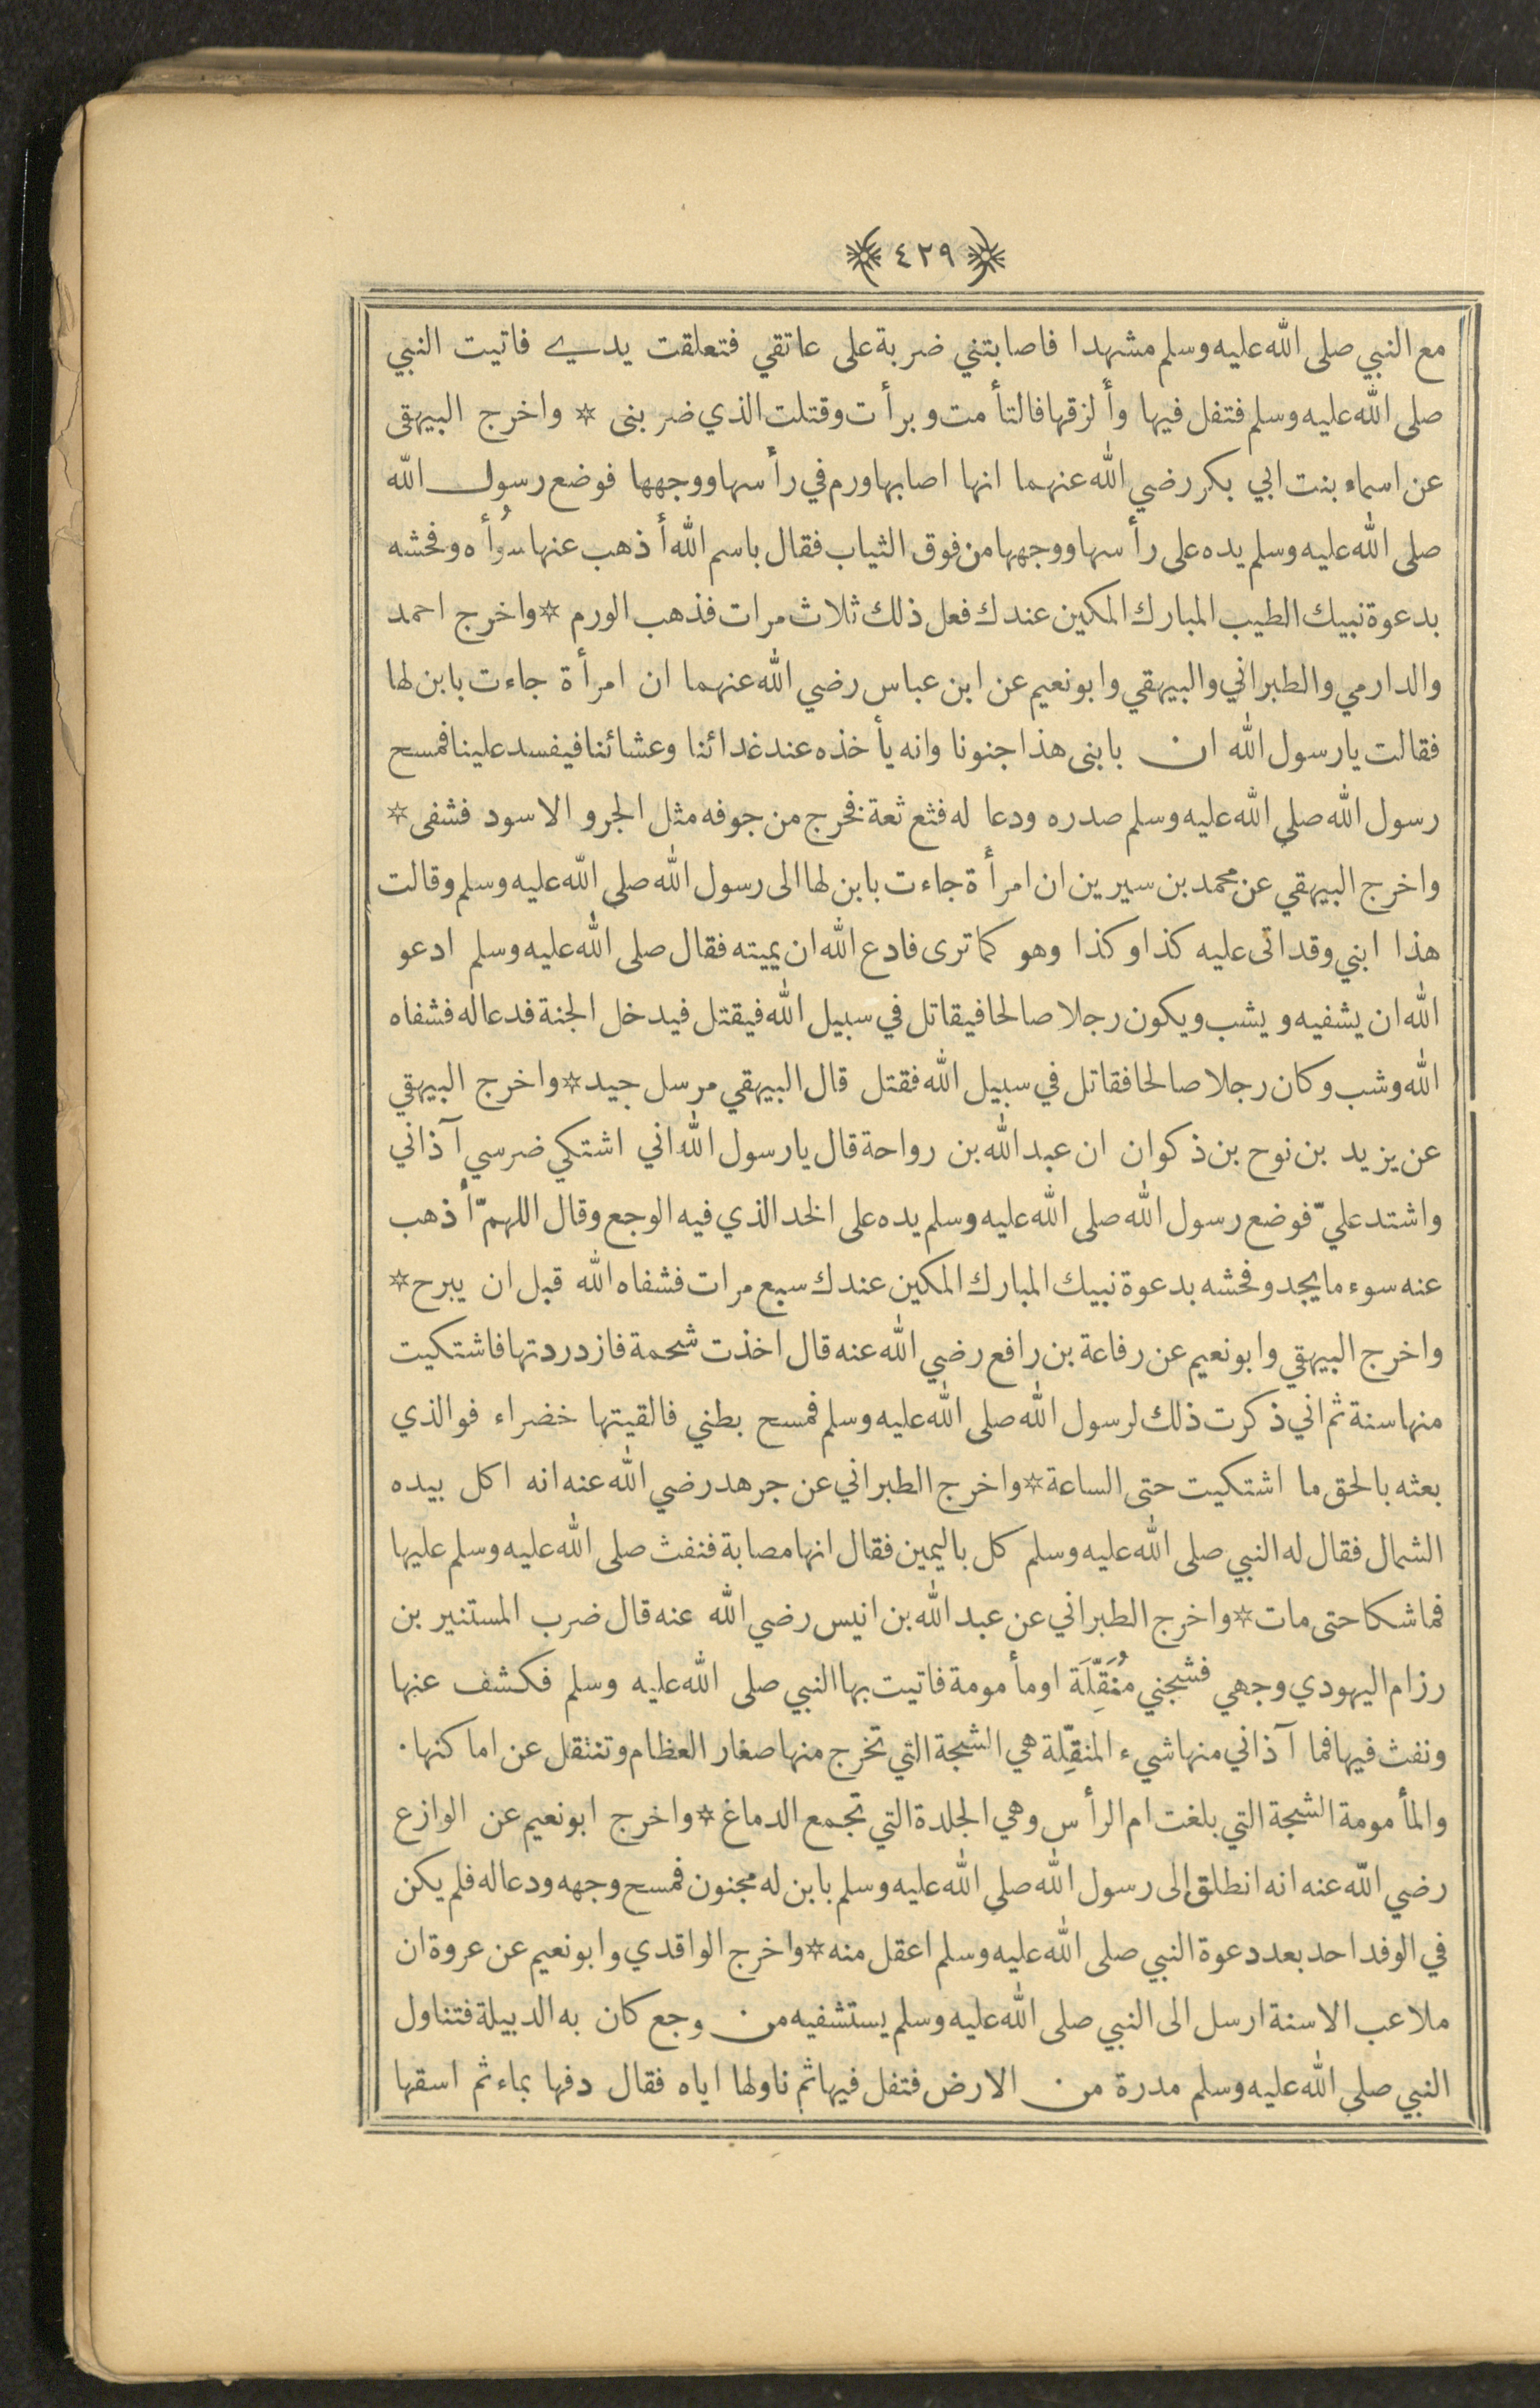 ٤٢٩
مع النبي صلى الله عليه وسلم مشهدا فاصابتني ضربة على عاتقي فتعلقت يدي فاتيت النبي
صلى الله عليه وسلم فتفل فيها وألزقها فالتأمت وبرأت وقتلت الذي ضربنى * واخرج البيهقى
عن اسماء بنت ابي بكر رضي الله عنهما انها اصابها ورم في رأسها ووجهها فوضع رسول الله
صلى الله عليه وسلم يده على رأسها ووجهها من فوق الثياب فقال باسم الله أذهب عنها سُوأه وفحشه
بدعوة نبيك الطيب المبارك المكين عندك فعل ذلك ثلاث مرات فذهب الورم * واخرج احمد
والدارمي والطبراني والبيهقي وابو نعيم عن ابن عباس رضي الله عنهما ان امرأة جاءت بابن لها
فقالت يارسول الله ان بابنى هذا جنونا وانه يأخذه عند غدائنا وعشائنا فيفسد علينا فمسح
رسول الله صلى الله عليه وسلم صدره ودعا له فثع ثعة فخرج من جوفه مثل الجرو الاسود فشفى *
واخرج البيهقي عن محمد بن سيرين ان امرأة جاءت بابن لها الى رسول الله صلى الله عليه وسلم وقالت
هذا ابني وقد اتى عليه كذا وكذا وهو كما ترى فادع الله ان يميته فقال صلى الله عليه وسلم ادعو
الله ان يشفيه ويشب ويكون رجلا صالحا فيقاتل في سبيل الله فيقتل فيدخل الجنة فدعا له فشفاه
الله وشب وكان رجلا صالحا فقاتل في سبيل الله فقتل قال البيهقي مرسل جيد * واخرج البيهقي
عن يزيد بن نوح بن ذكوان ان عبد الله بن رواحة قال يارسول الله اني اشتكي ضرسي آذاني
واشتد عليّ فوضع رسول الله صلى الله عليه وسلم يده على الخد الذي فيه الوجع وقال اللهمّ أذهب
عنه سوء ما يجد وفحشه بدعوة نبيك المبارك المكين عندك سبع مرات فشفاه الله قبل ان يبرح *
واخرج البيهقي وابو نعيم عن رفاعة بن رافع رضي الله عنه قال اخذت شحمة فازدردتها فاشتكيت
منها سنة ثم اني ذكرت ذلك لرسول الله صلى الله عليه وسلم فمسح بطني فالقيتها خضراء فوالذي
بعثه بالحق ما اشتكيت حتى الساعة * واخرج الطبراني عن جرهد رضي الله عنه انه اكل بيده
الشمال فقال له النبي صلى الله عليه وسلم كل باليمين فقال انها مصابة فنفث صلى الله عليه وسلم عليها
فما شكا حتى مات * واخرج الطبراني عن عبد الله بن انيس رضي الله عنه قال ضرب المستنير بن
رزام اليهودي وجهي فشجني مُنَقِّلَة او مأمومة فاتيت بها النبي صلى الله عليه وسلم فكشف عنها
ونفث فيها فما آذاني منها شيء المنقِّلة هي الشجة التي تخرج منها صغار العظام وتنتقل عن اماكنها.
والمأمومة الشجة التي بلغت ام الرأس وهي الجلدة التي تجمع الدماغ * واخرج ابو نعيم عن الوازع
رضي الله عنه انه انطلق إلى رسول الله صلى الله عليه وسلم بابن له مجنون فمسح وجهه ودعا له فلم يكن
في الوفد احد بعد دعوة النبي صلى الله عليه وسلم اعقل منه * واخرج الواقدي وابو نعيم عن عروة ان
ملاعب الاسنة ارسل الى النبي صلى الله عليه وسلم يستشفيه من وجع كان به الدبيلة فتناول
النبي صلى الله عليه وسلم مدرة من الارض فتفل فيها ثم ناولها اياه فقال دفها بماء ثم اسقها